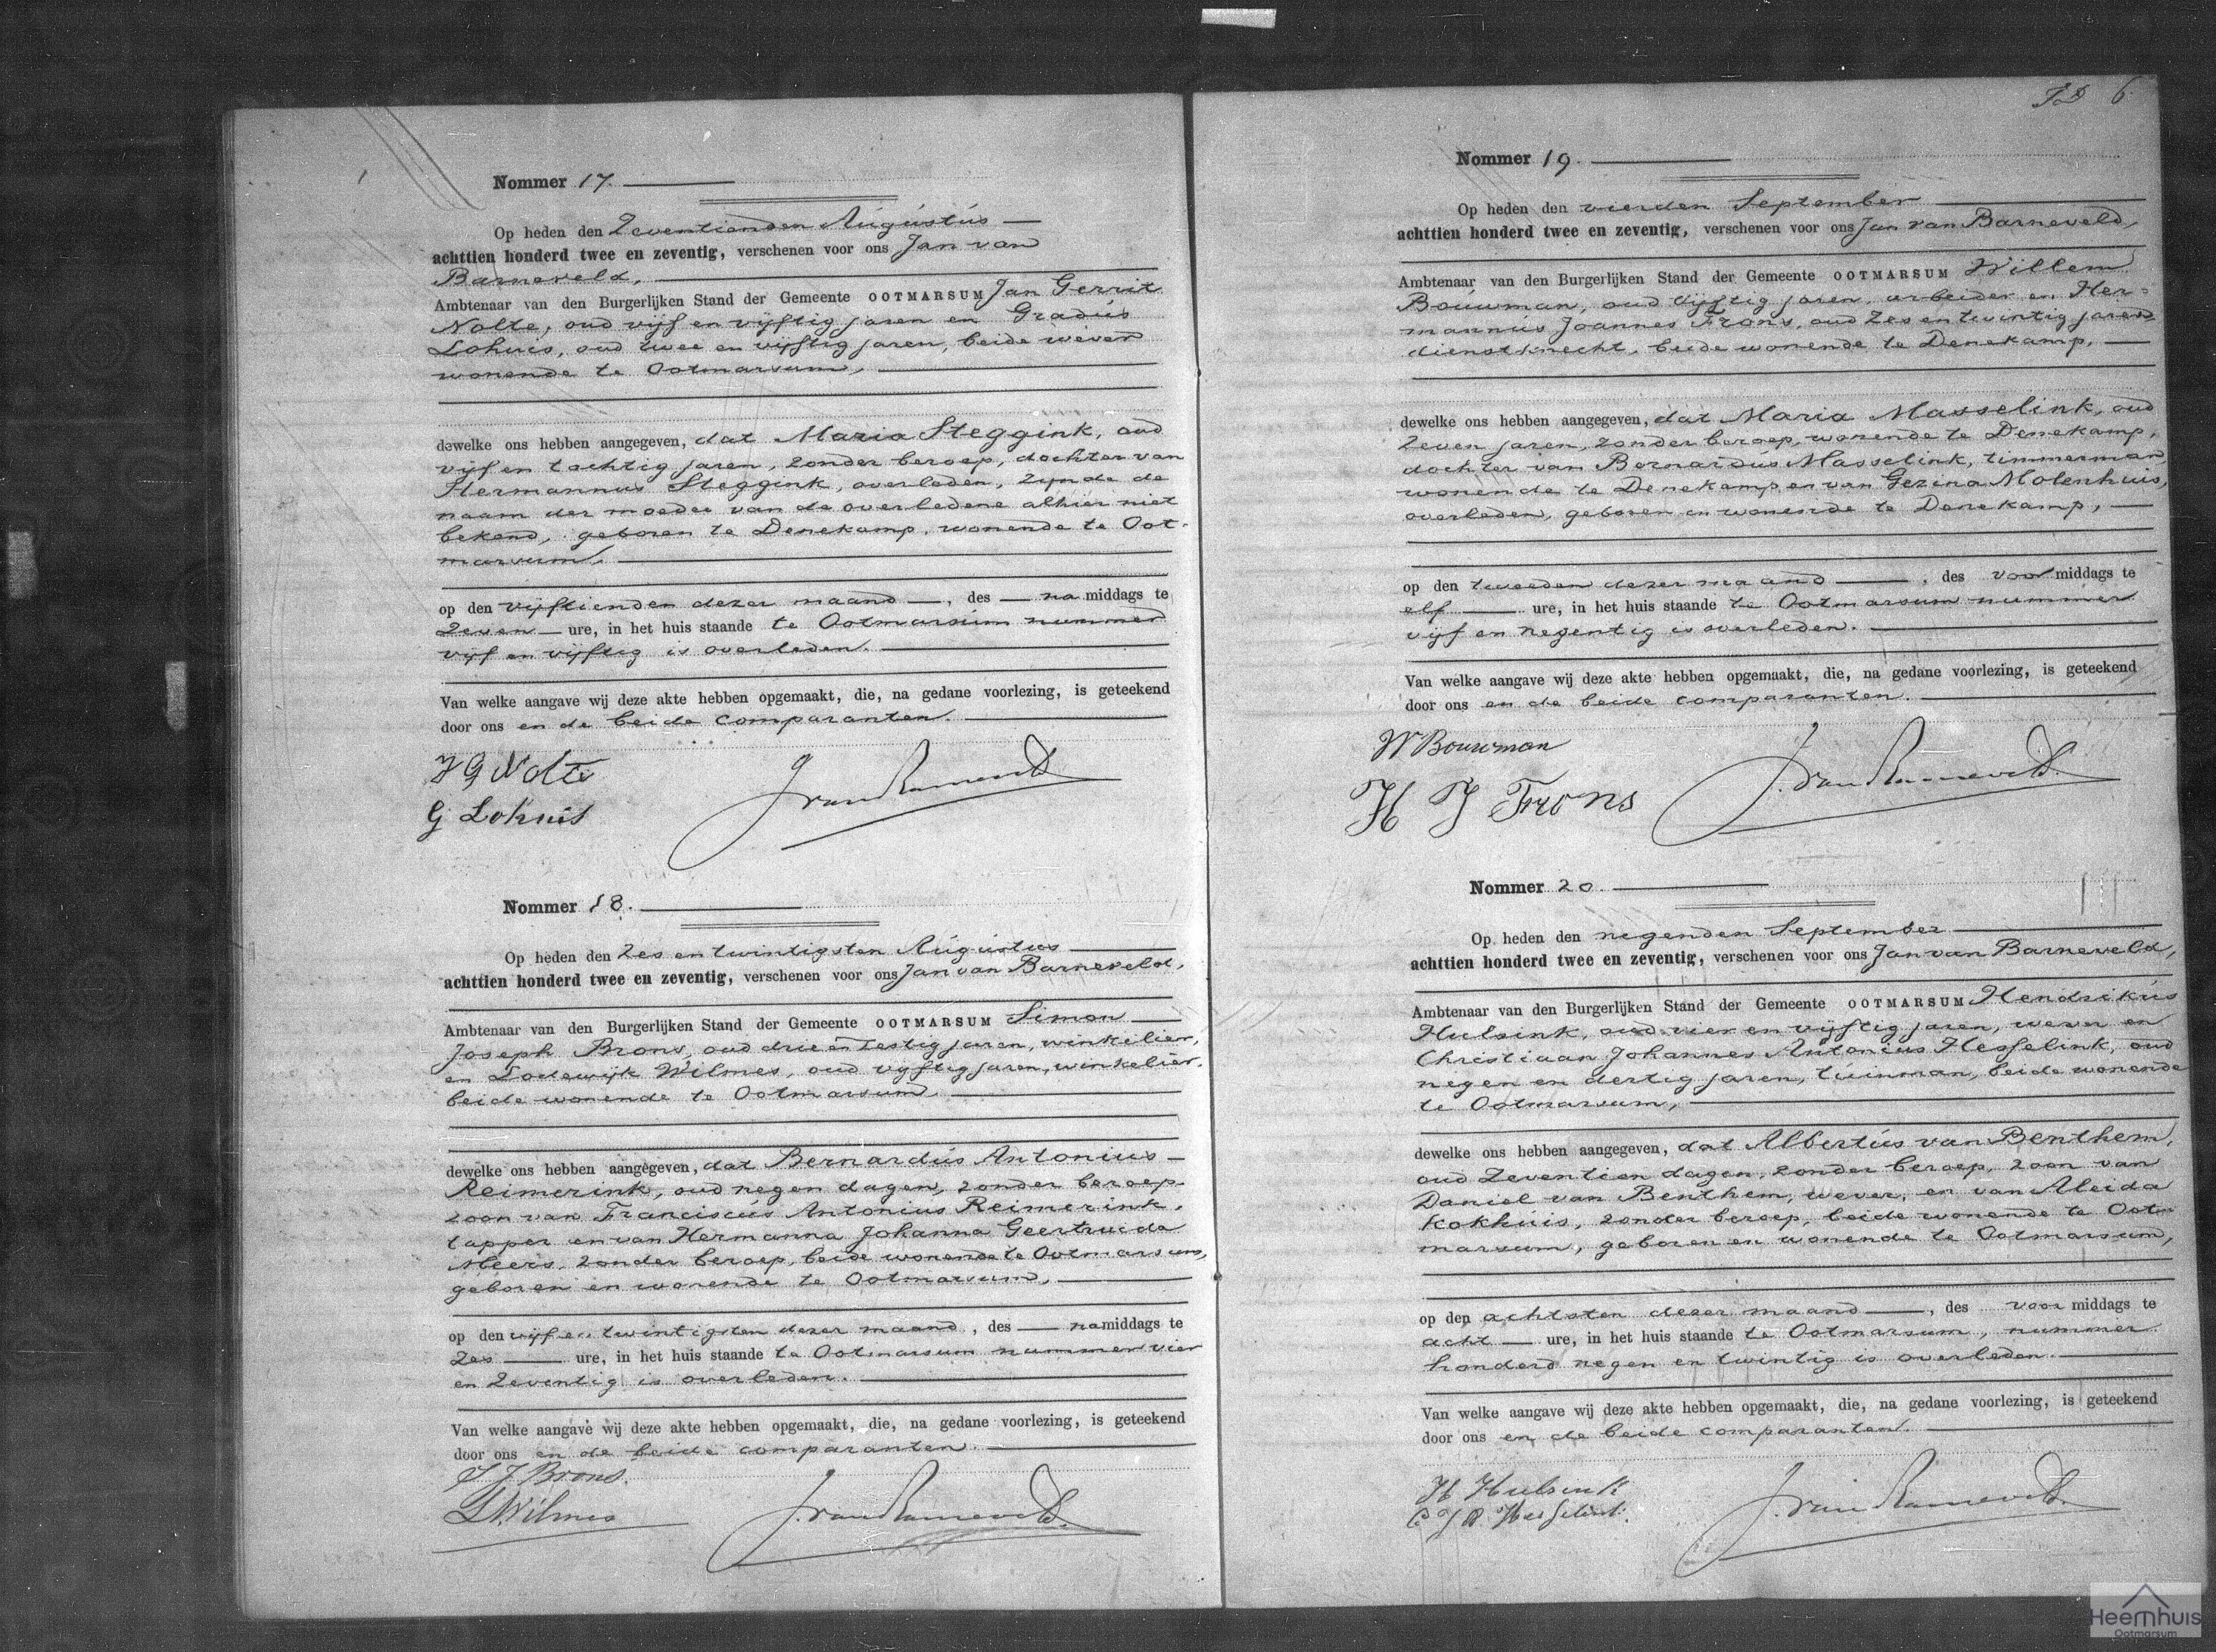 Nommer 17.
Op heden den Zeventienden Augustus
achttien honderd twee en zeventig, verschenen voor ons Jan van
Barneveld,
Ambtenaar van den Burgerlijken Stand der Gemeente OOTMARSUM Jan Gerrit
Nolte, oud vijf en vijftig jaren en Gradus
Lohuis, oud twee en vijftig jaren, beide wever
wonende te Ootmarsum,
dewelke ons hebben aangegeven, dat Maria Steggink, oud
vijf en tachtig jaren, zonder beroep, dochter van
Hermannus Steggink, overleden, zijnde de
naam der moeder van de overledene alhier niet
bekend, geboren te Denekamp, wonende te Oot-
marsum,
op den vijftienden dezer maand, des na middags te
Zeven ure, in het huis staande te Ootmarsum nummer
vijf en vijftig is overleden.
Van welke aangave wij deze akte hebben opgemaakt, die, na gedane voorlezing, is geteekend
door ons en de beide comparanten.
J G Nolte
G Lohuis
J van Barneveld
Nommer 18.
Op heden den Zes en twintigsten Augustus
achttien honderd twee en zeventig, verschenen voor ons Jan van Barneveld,
Ambtenaar van den Burgerlijken Stand der Gemeente OOTMARSUM Simon
Joseph Brons, oud drie en Zestig jaren, winkelier,
en Lodewijk Wilmes, oud vijftig jaren, winkelier,
beide wonende te Ootmarsum
dewelke ons hebben aangegeven, dat Bernardus Antonius
Reimerink, oud negen dagen, zonder beroep
zoon van Franciscus Antonius Reimerink,
tapper en van Hermanna Johanna Geertruida
Meers, zonder beroep, beide wonende te Ootmarsum,
geboren en wonende te Ootmarsum,
op den vijf en twintigsten dezer maand, des na middags te
Zes ure, in het huis staande te Ootmarsum nummer vier
en Zeventig is overleden.
Van welke aangave wij deze akte hebben opgemaakt, die, na gedane voorlezing, is geteekend
door ons en de beide comparanten.
S J Brons.
L Wilmes
J. van Barneveld.
6
Nommer 19.
Op heden den vierden September
achttien honderd twee en zeventig, verschenen voor ons Jan van Barneveld,
Ambtenaar van den Burgerlijken Stand der Gemeente OOTMARSUM Willem
Bouwman, oud vijftig jaren, arbeider en Her-
mannus Joannes Frons, oud Zes en twintig jaren
dienstknecht, beide wonende te Denekamp,
dewelke ons hebben aangegeven, dat Maria Masselink, oud
Zeven jaren, zonder beroep, wonende te Denekamp,
dochter van Bernardus Masselink, timmerman,
wonende te Denekamp en van Gezina Molenhuis,
overleden, geboren en wonende te Denekamp,
op den tweeden dezer maand, des voor middags te
elf ure, in het huis staande te Ootmarsum nummer
vijf en negentig is overleden.
Van welke aangave wij deze akte hebben opgemaakt, die, na gedane voorlezing, is geteekend
door ons en de beide comparanten.
W Bouwman
H J Frons
J. van Barneveld.
Nommer 20.
Op heden den negenden September
achttien honderd twee en zeventig, verschenen voor ons Jan van Barneveld,
Ambtenaar van den Burgerlijken Stand der Gemeente OOTMARSUM Hendrikus
Hulsink, oud vier en vijftig jaren, wever en
Christiaan Johannes Antonius Hesselink, oud
negen en dertig jaren, tuinman, beide wonende
te Ootmarsum,
dewelke ons hebben aangegeven, dat Albertus van Benthem,
oud Zeventien dagen, zonder beroep, zoon van
Daniel van Benthem, wever, en van Aleida
Kokhuis, zonder beroep, beide wonende te Oot-
marsum, geboren en wonende te Ootmarsum,
op den achtsten dezer maand, des voor middags te
acht ure, in het huis staande te Ootmarsum, nummer
honderd negen en twintig is overleden.
Van welke aangave wij deze akte hebben opgemaakt, die, na gedane voorlezing, is geteekend
door ons en de beide comparanten.
H Hulsink
C J A Hesselink
J. van Barneveld.
Heemhuis
Ootmarsum